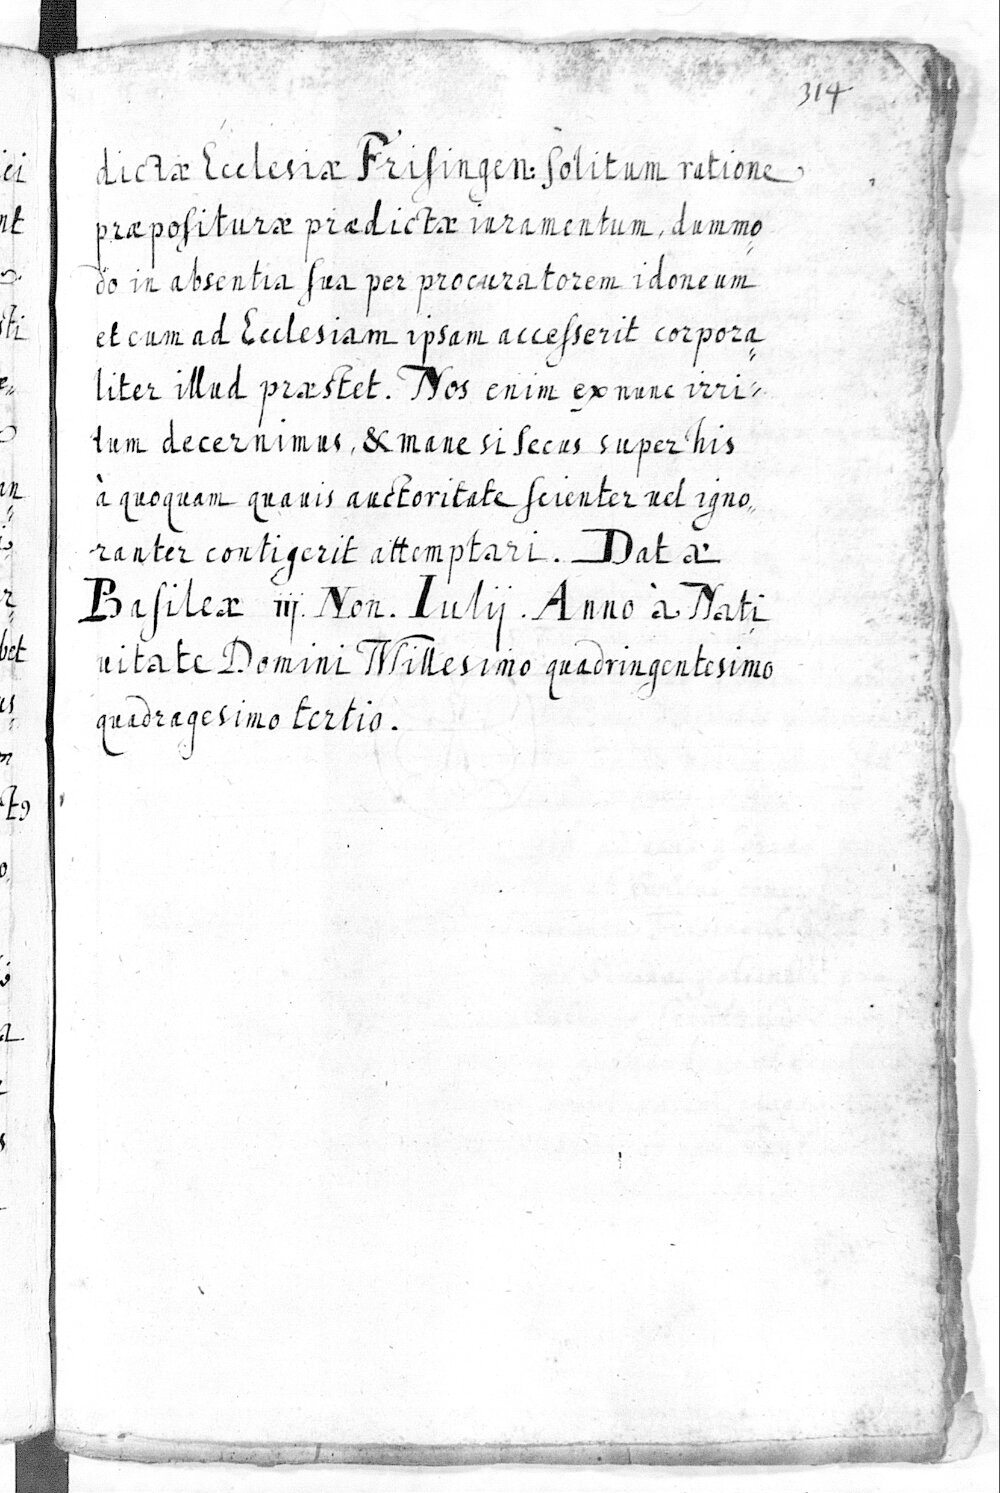 314
dictæ Ecclesiæ Frisingen: solitum ratione
præposituræ prædictæ iuramentum, dummo„
do in absentia sua per procuratorem idoneum
et cum ad Ecclesiam ipsam accesserit corpora„
liter illud præstet. Nos enim ex nunc irri„
tum decernimus, & mane si secus super his
à quoquam quauis auctoritate scienter uel igno„
ranter contigerit attemptari. Datæ
Basileæ iij. Non. Iulij. Anno à Nati
uitate Domini Millesimo quadringentesimo
quadragesimo tertio.